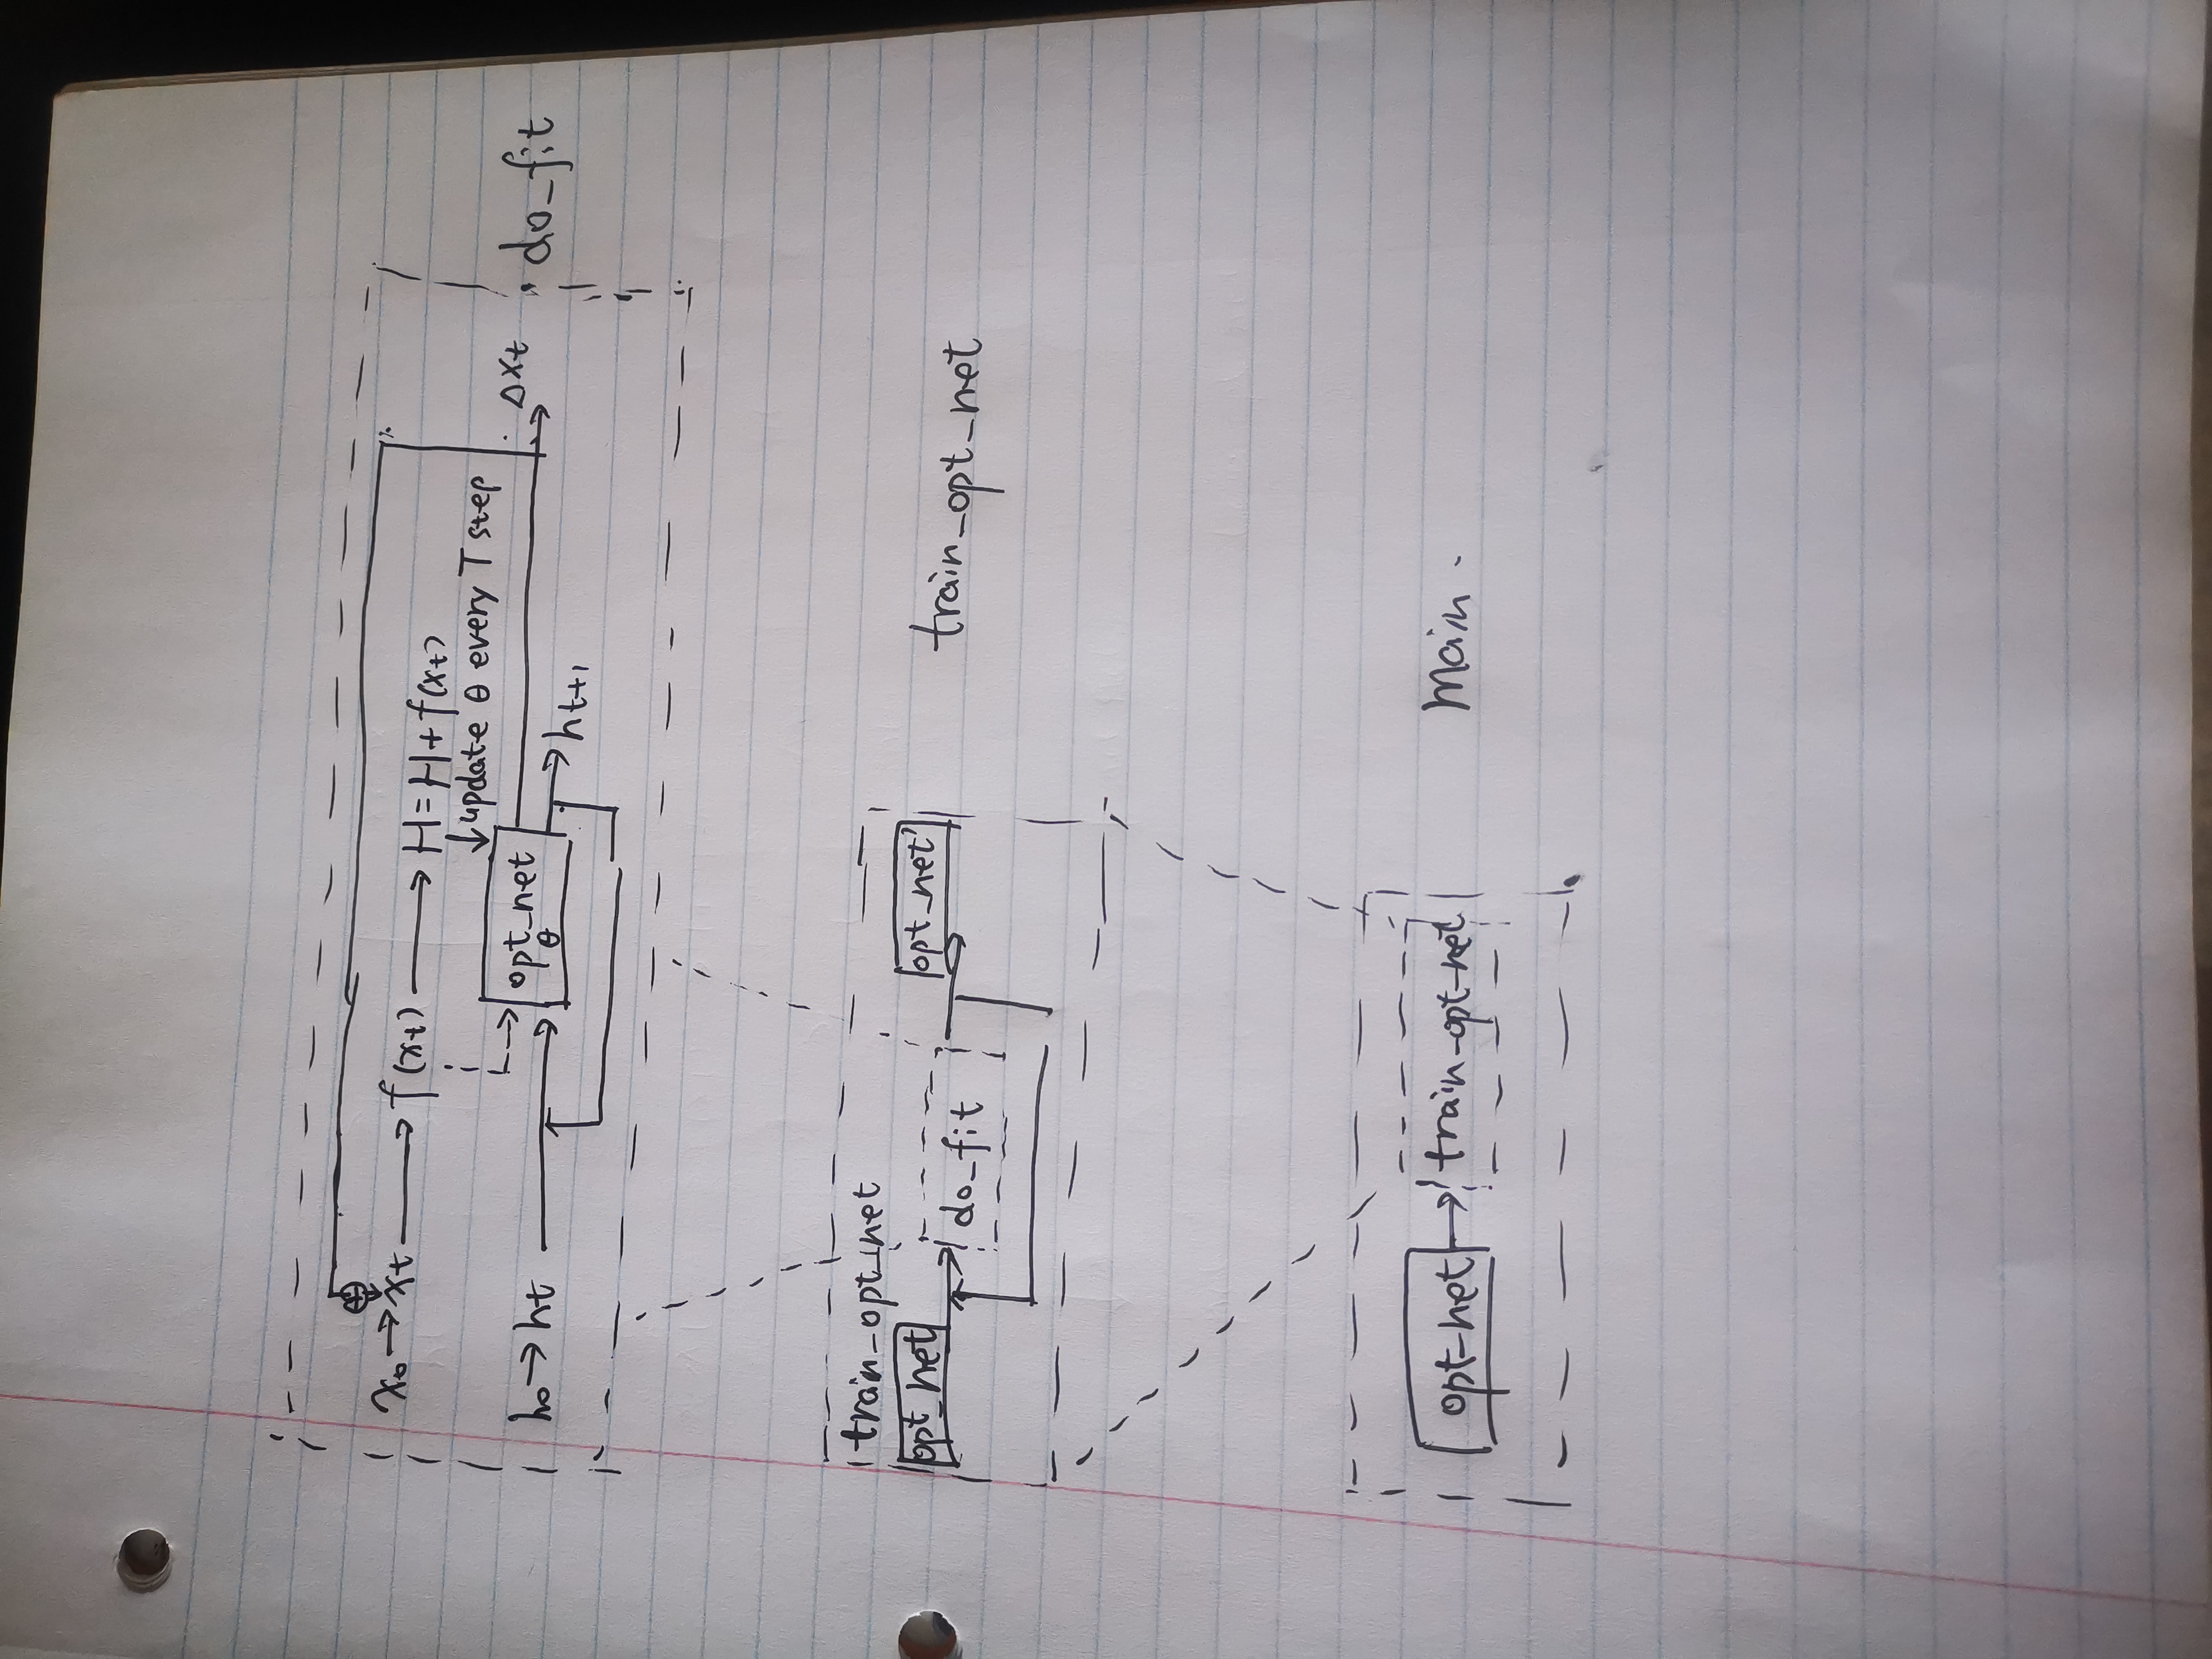 x₀ → xt → f(xt) → H = H + f(xt)
↓ update θ every T step
h₀ → ht → opt_net → Δxt
θ
ht+1
do_fit
train_opt_net
opt_net → do_fit → opt_net'
train_opt_net
opt_net → train_opt_net
Main.